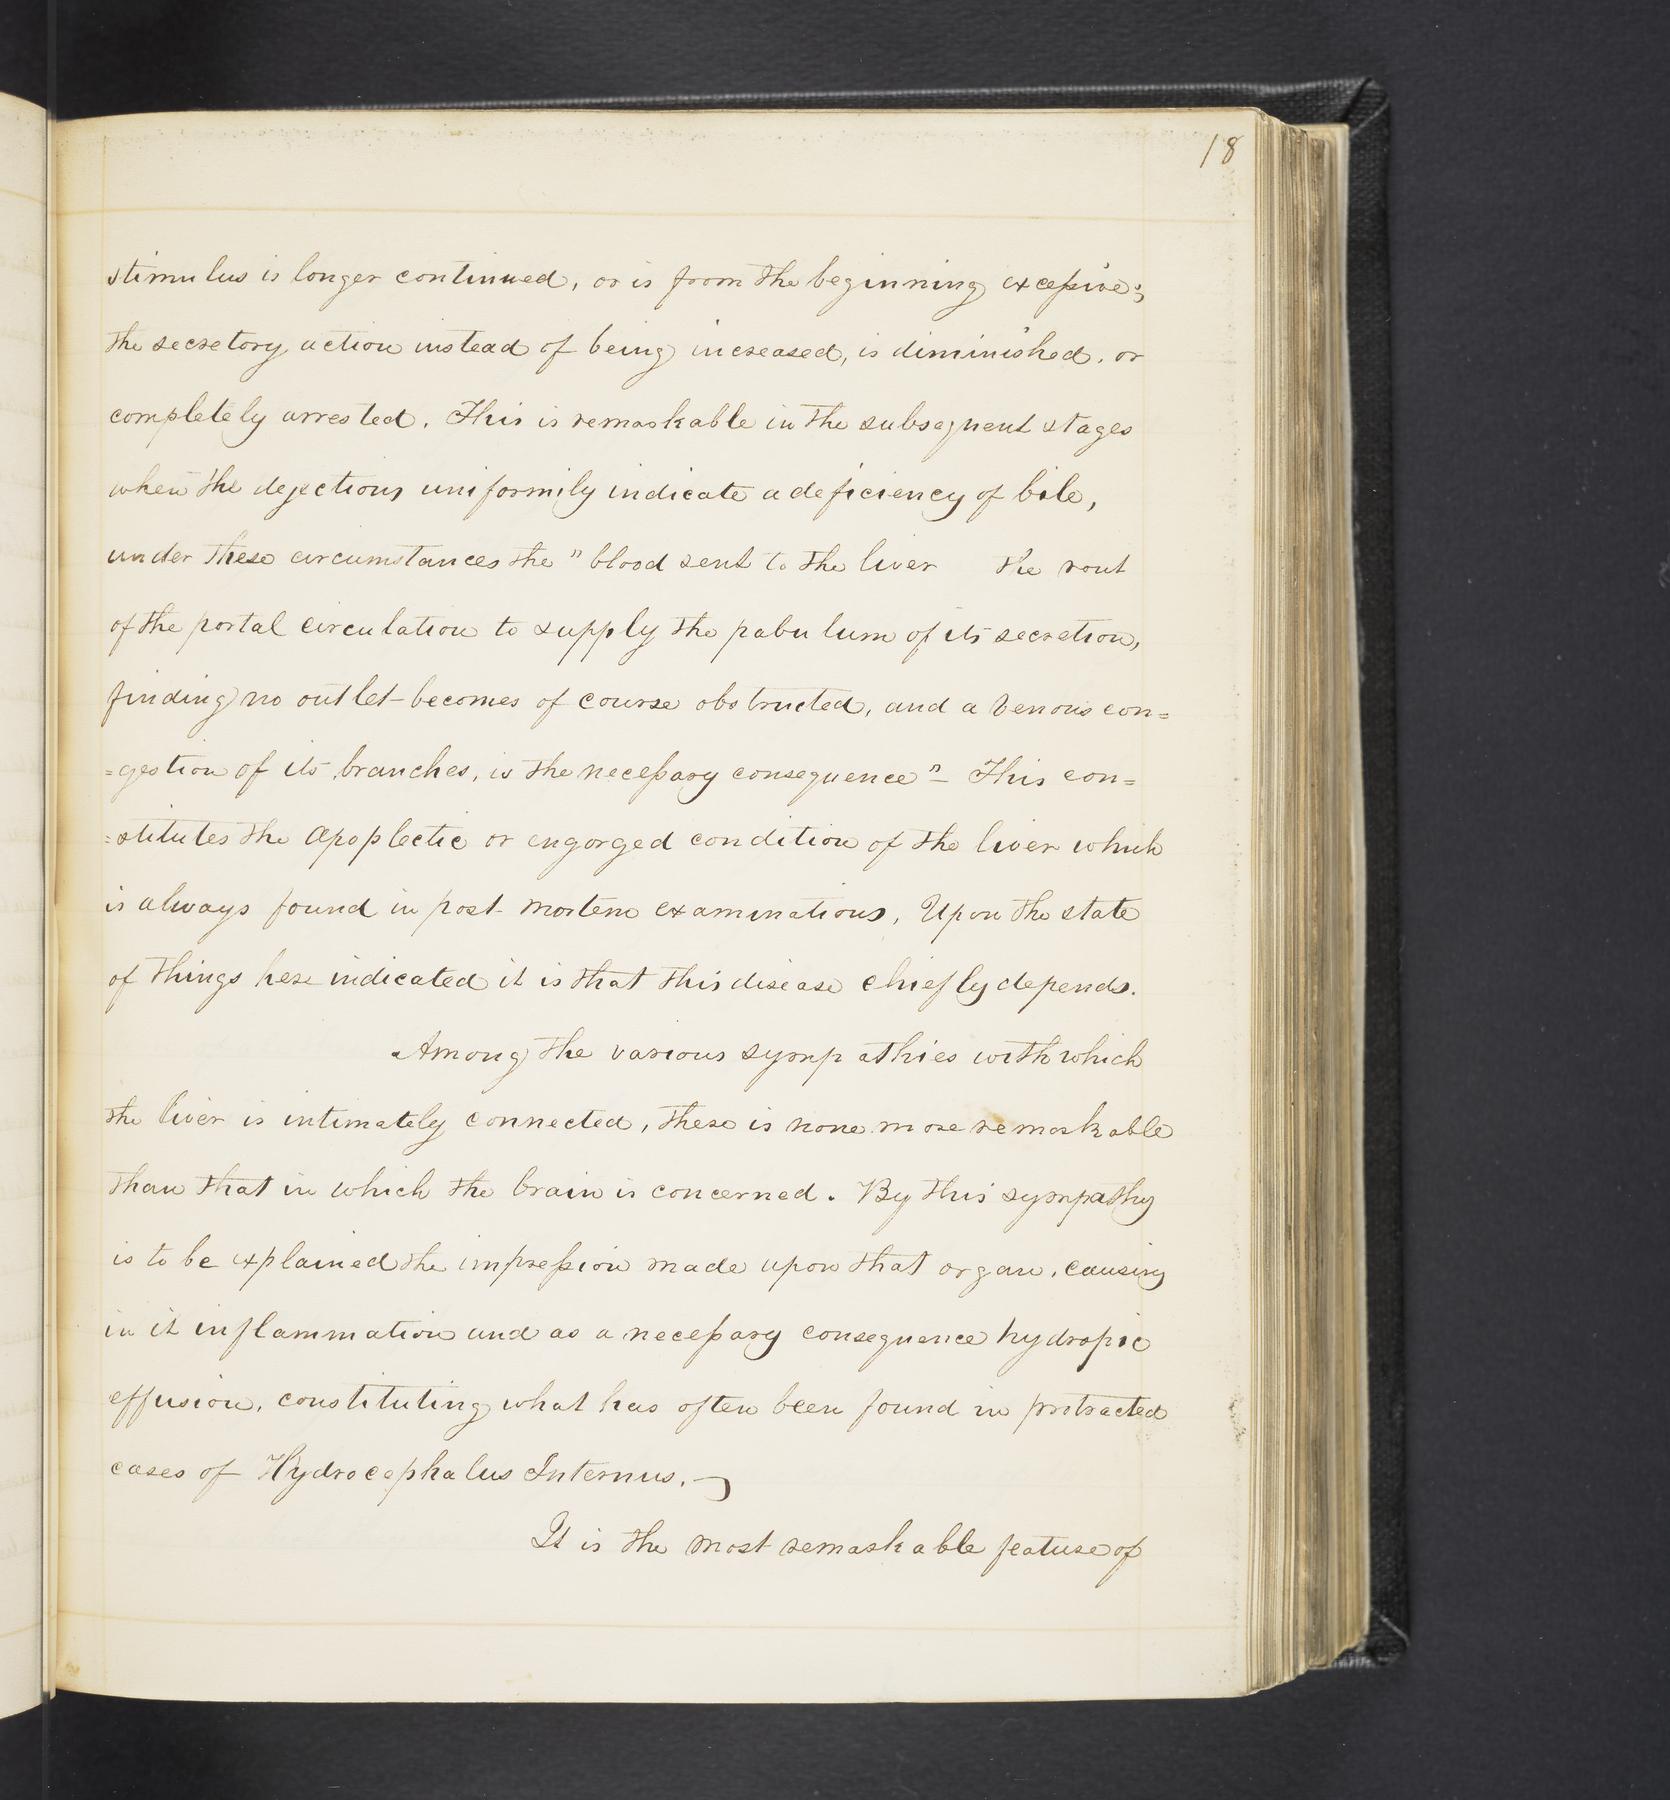 18
stimulus is longer continued, or is from the beginning excessive;
the secretory action instead of being increased, is diminished, or
completely arrested. This is remarkable in the subsequent stages
when the dejections uniformily indicate a deficiency of bile,
under these circumstances the " blood sent to the liver the rout
of the portal circulation to supply the pabulum of its secretion,
finding no outlet becomes of course obstructed, and a venous con=
=gestion of its branches, is the necessary consequence" - This con=
=stitutes the apoplectic or engorged condition of the liver which
is always found in post mortem examinations. Upon the state
of things here indicated it is that this disease chiefly depends.
Among the various sympathies with which
the liver is intimately connected, there is none more remarkable
than that in which the brain is concerned. By this sympathy
is to be explained the impression made upon that organ, causing
in it inflammation and as a necessary consequence hydropic
effusion, constituting what has often been found in protracted
cases of Hydrocephalus Internus.
It is the most remarkable feature of